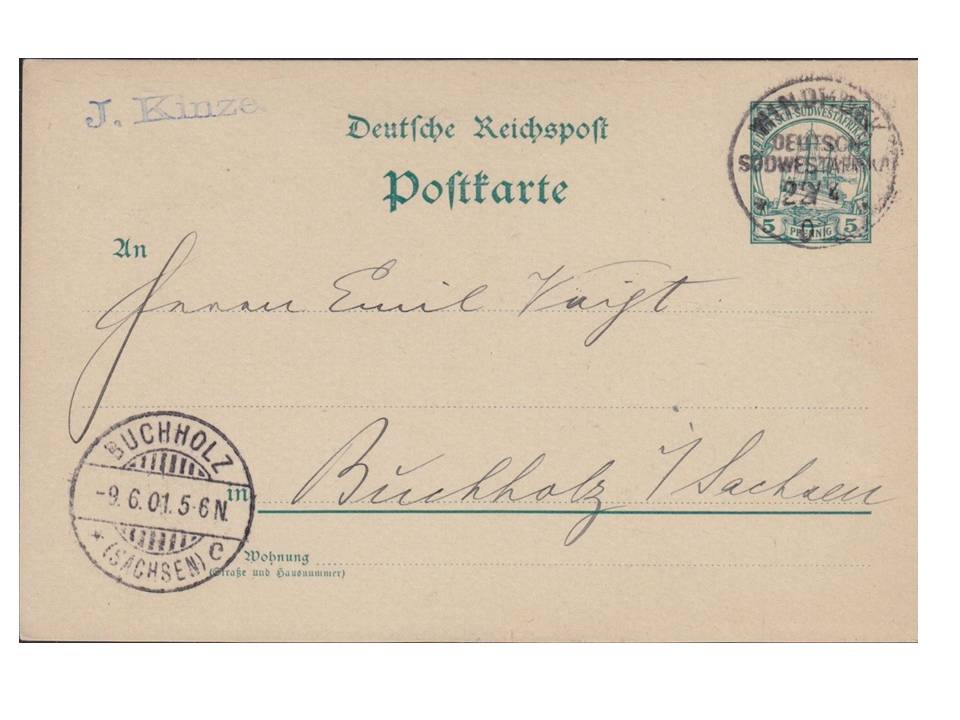 J. Kinze
Deutsche Reichspost
Postkarte
WINDHOEK
DEUTSCH-SÜDWESTAFRIKA
DEUTSCH-
SÜDWESTAFRIKA
22/4
5 PFENNIG 5
An
Herrn Emil Voigt
BUCHHOLZ
-9. 6. 01. 5-6 N.
* (SACHSEN) c
in Buchholz i/Sachsen
Wohnung
(Straße und Hausnummer)